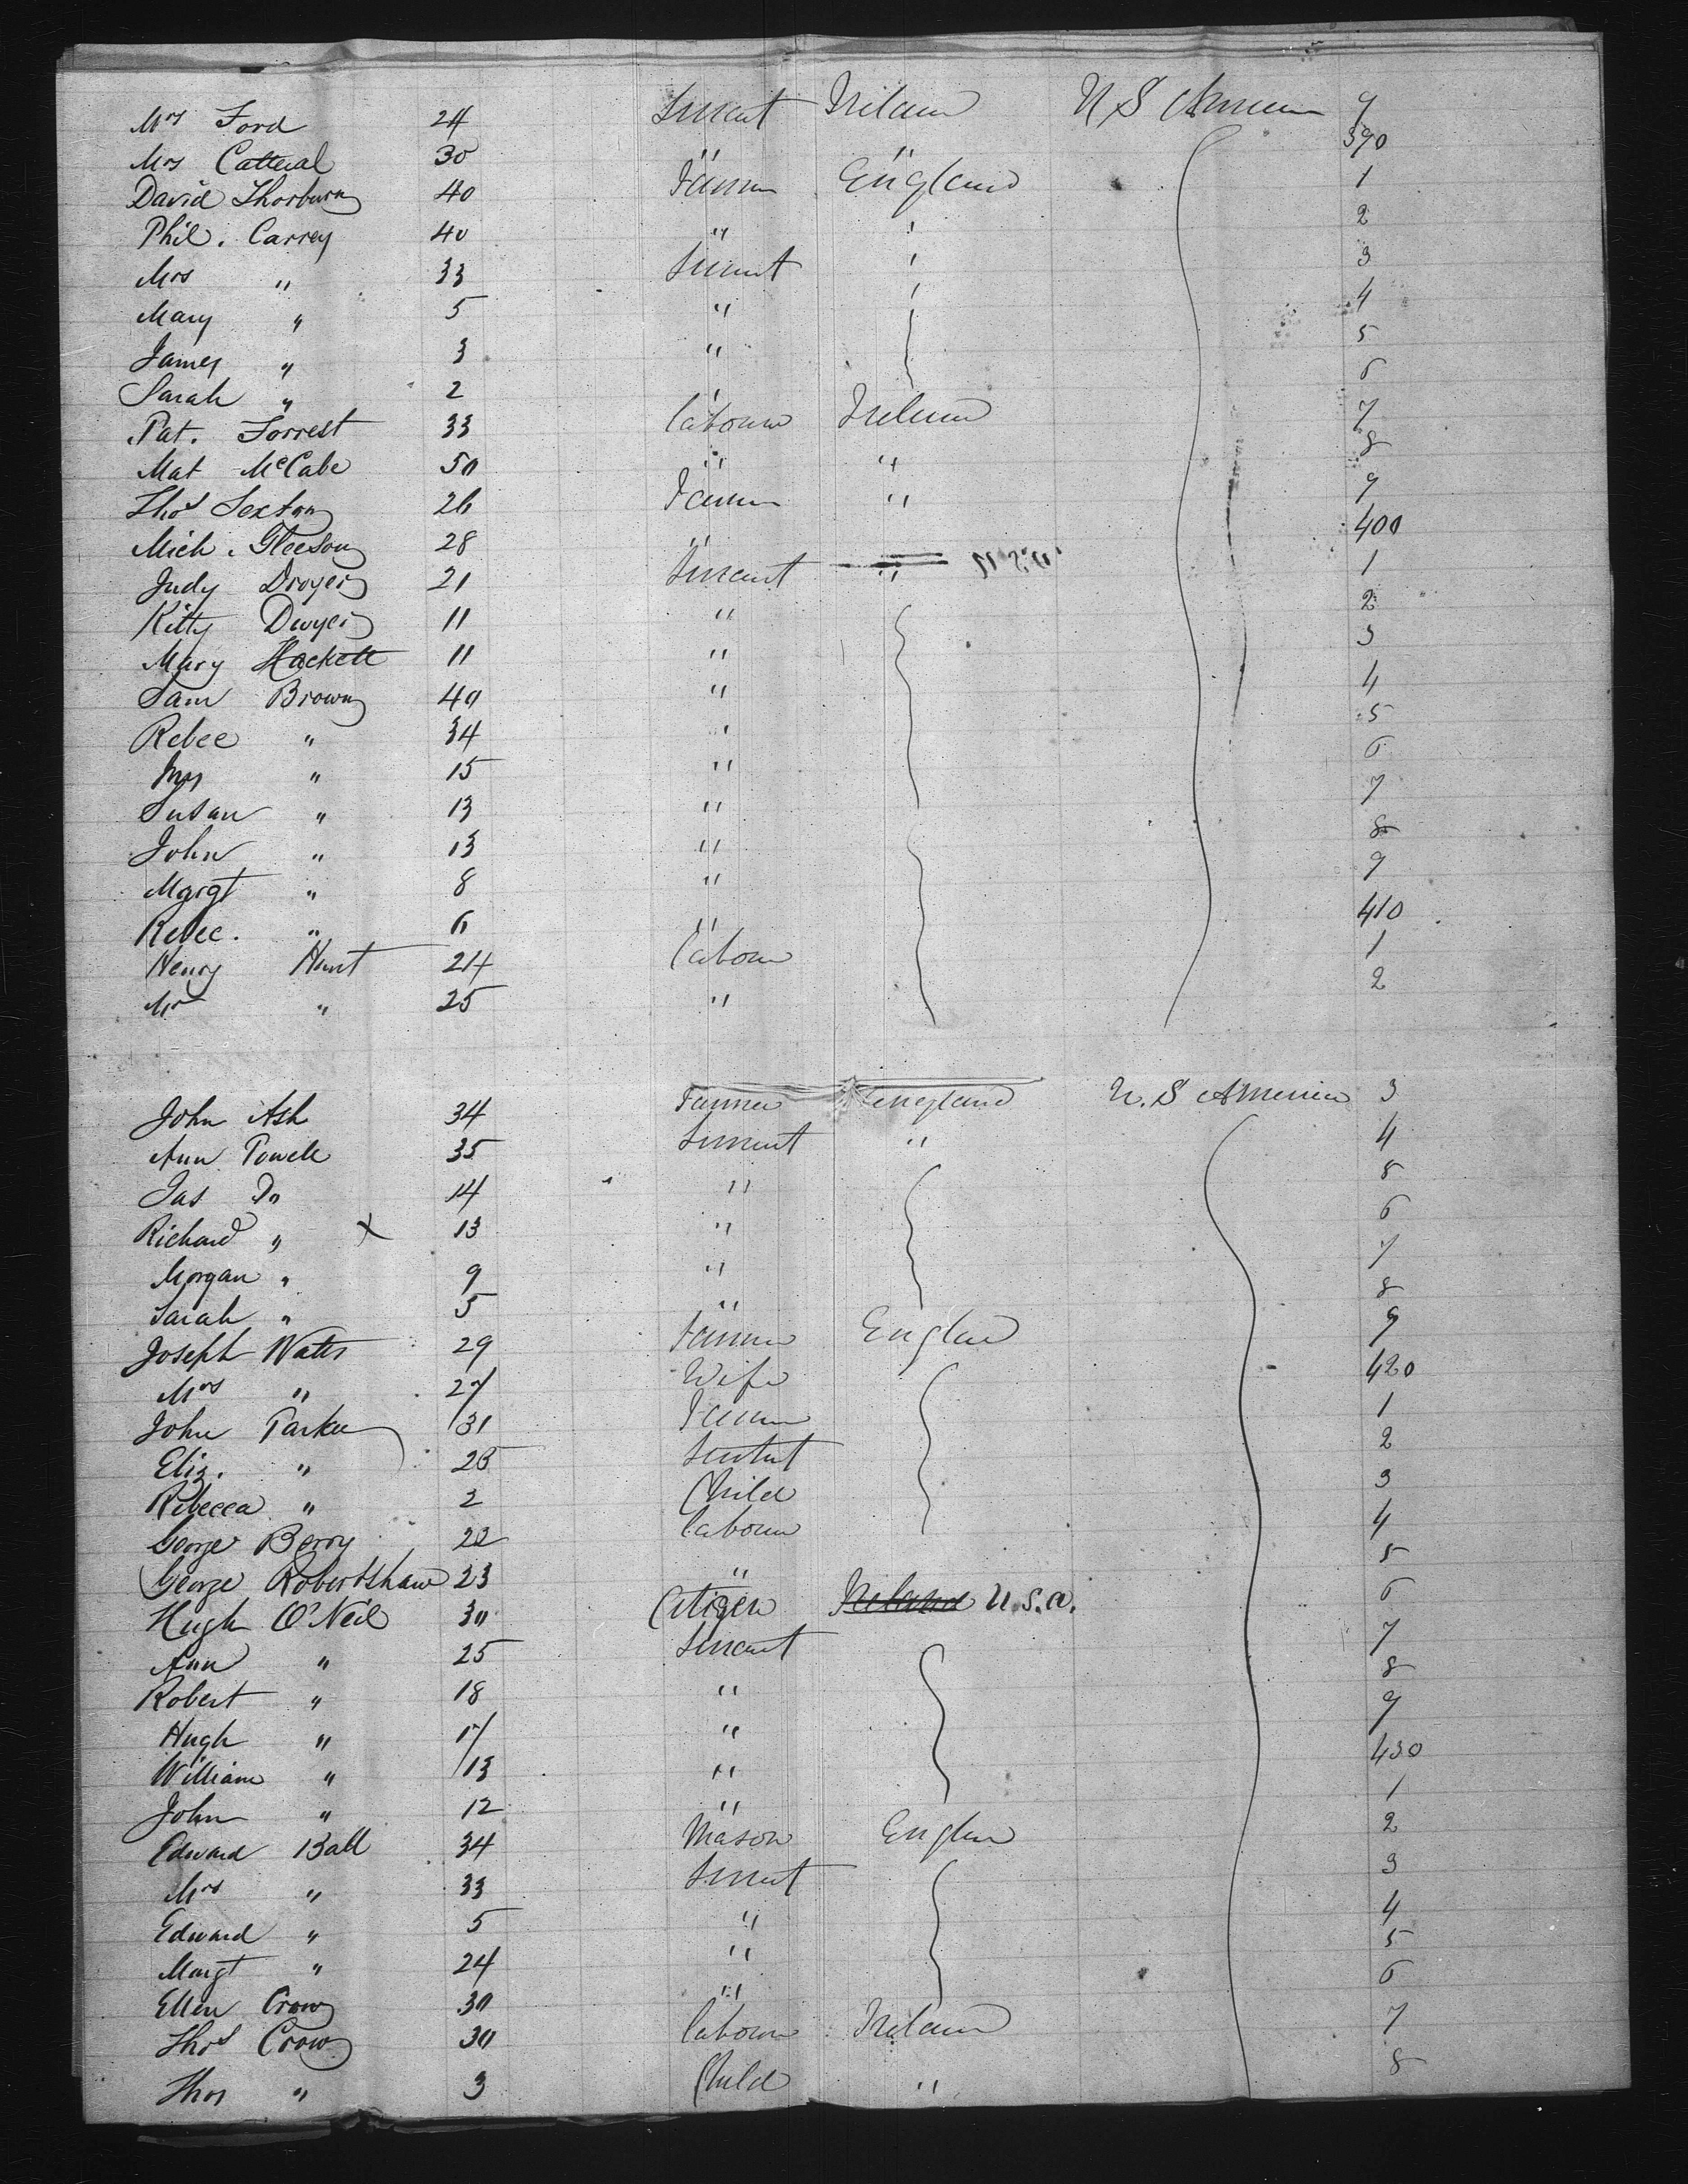 Mrs Ford 24 Servant Ireland U S America 9
Mrs Catteral 30 " " 390
David Thorburn 40 Farmer England 1
Phil. Carrey 40 " " 2
Mrs " 33 Servant " 3
Mary " 5 " " 4
James " 3 " 5
Sarah " 2 " 6
Pat. Forrest 33 Labourer Ireland 7
Mat McCabe 50 " " 8
Thos Sexton 26 Farmer " 9
Mich. Gleeson 28 " 400
Judy Dwyer 21 Servant " 1
Kitty Dwyer 11 " 2
Mary Hackett 11 " 3
Sam Brown 40 " 4
Rebec " 34 " 5
" 15 " 6
Susan " 13 " 7
John " 13 " 8
Margt " 8 " 9
Rebec. " 6 " 410
Henry Hunt 24 Labour 1
Mr " 25 " 2
John Ash 34 Farmer England U.S America 3
Ann Powell 35 Servant " 4
Jas Do 14 " 5
Richard " X 13 " 6
Morgan " 9 " 7
Sarah " 5 " 8
Joseph Watts 29 Farmer England 9
Mrs " 27 Wife 420
John Parker 31 Farmer 1
Eliz. " 25 Servant 2
Rebecca " 2 Child 3
George Berry 22 Labourer 4
George Robertshaw 23 " 5
Hugh O'Neil 30 Citizen Ireland U.S.A. 6
Ann " 25 Servant 7
Robert " 18 " 8
Hugh " 17 " 9
William " 13 " 430
John " 12 " 1
Edward Ball 34 Mason England 2
Mrs " 33 Servant 3
Edward " 5 " 4
Margt " 24 " 5
Ellen Crow 30 " 6
Thos Crow 30 Labourer Ireland 7
Thos " 3 Child " 8